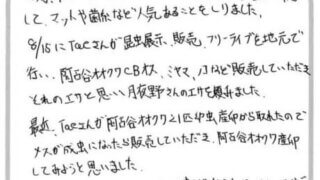 して、マットや菌糸など人気あることをしりました。
8/15にTacさんが昆虫展示、販売、フリーライブを地元で
行い、阿古谷オオクワCBオス、ミヤマ、ノコなど販売していただき
それのエサと思い月夜野さんのエサを購入ました。
最近、Tacさんが阿古谷オオクワ21匹幼虫産卵から取れたので
メスが成虫になったら販売していただき、阿古谷オオクワ産卵
してみようと思いました。